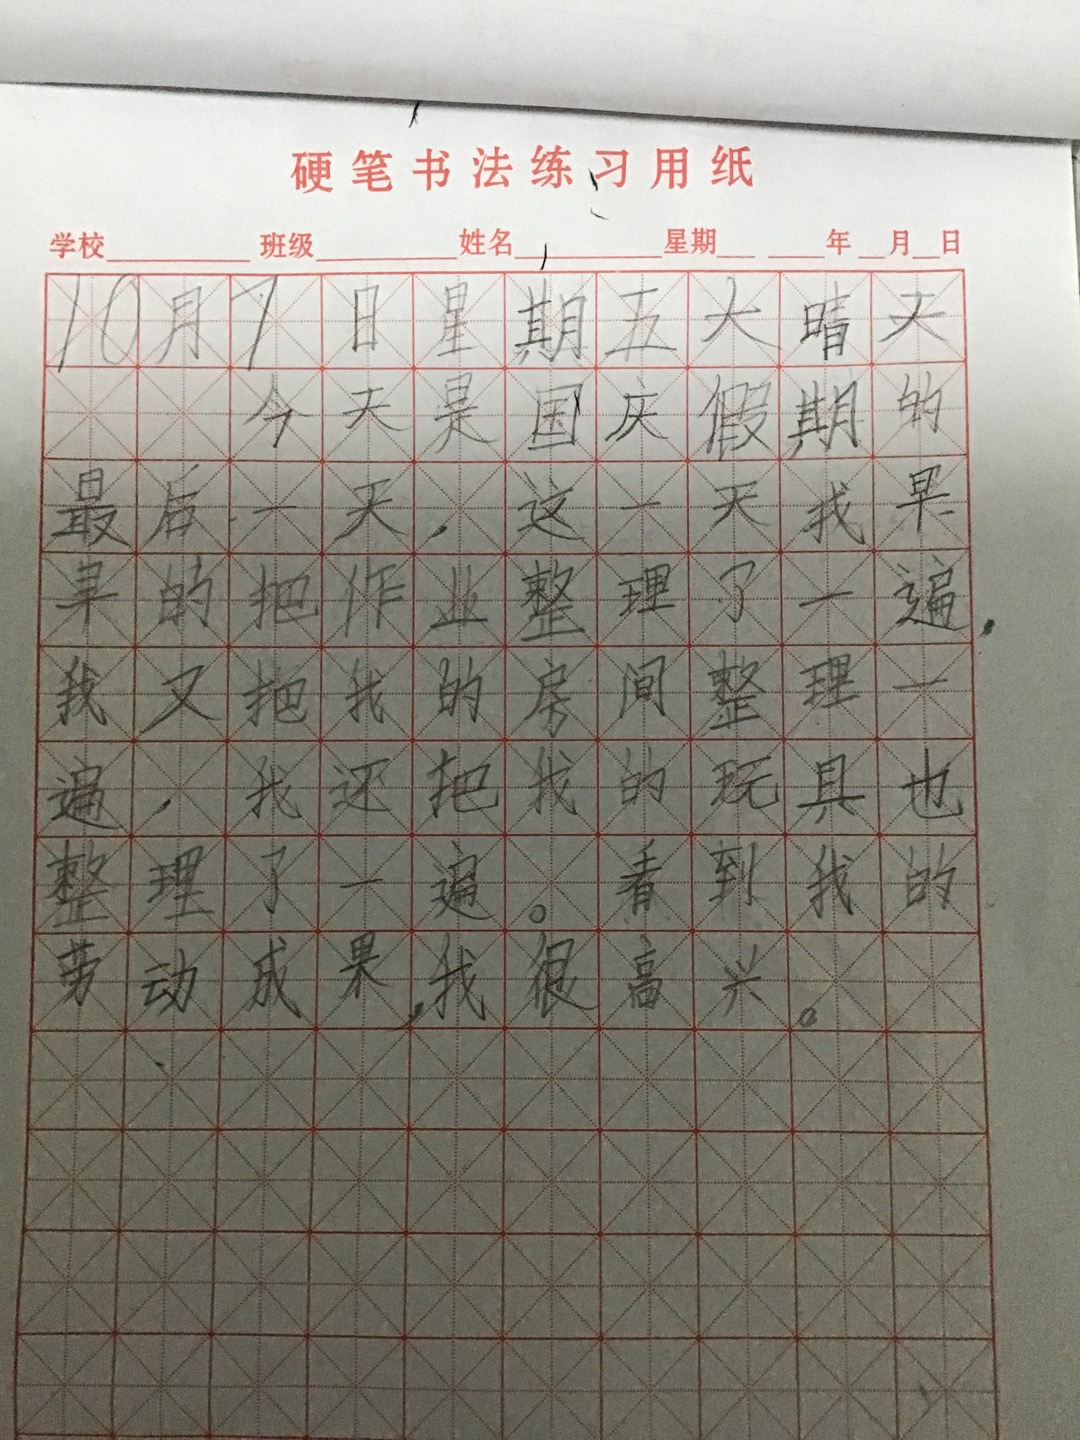 硬笔书法练习用纸
学校 班级 姓名 星期 年 月 日
10月7日星期五大晴天
今天是国庆假期的
最后一天,这一天我早
早的把作业整理了一遍,
我又把我的房间整理一
遍,我还把我的玩具也
整理了一遍。看到我的
劳动成果,我很高兴。